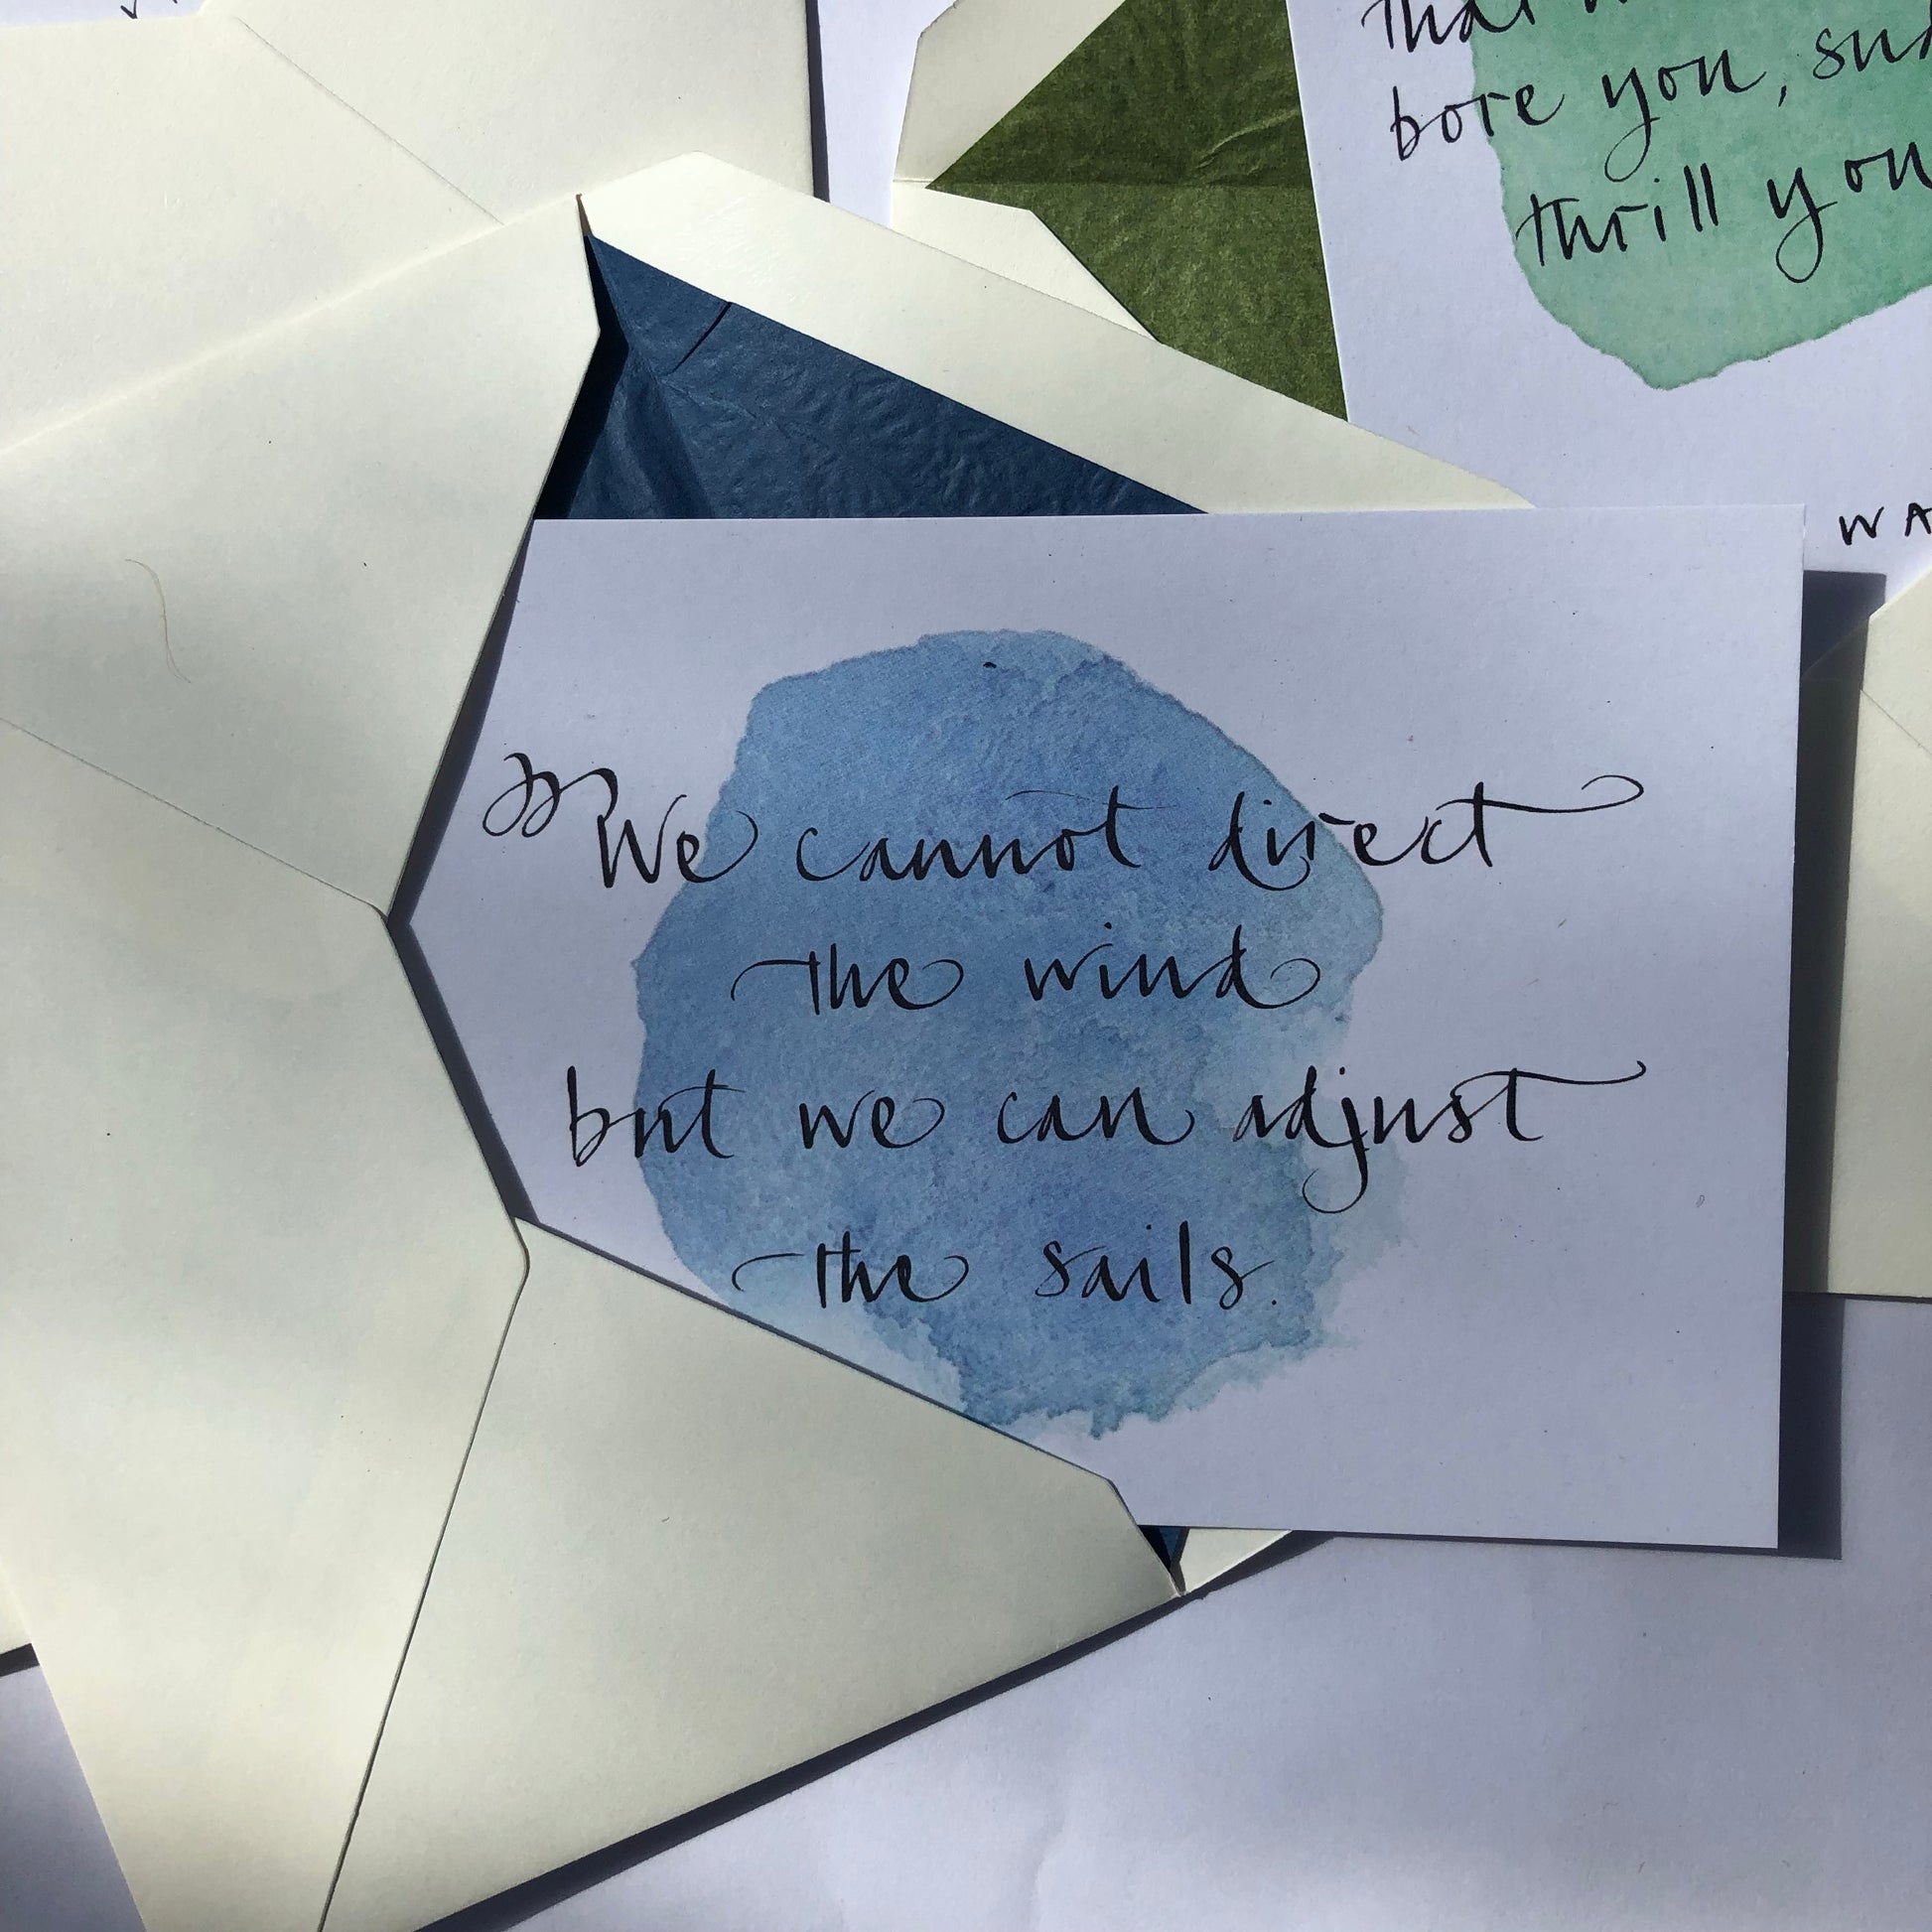 bore you,
thrill you
WA
We cannot direct
the wind
but we can adjust
the sails.